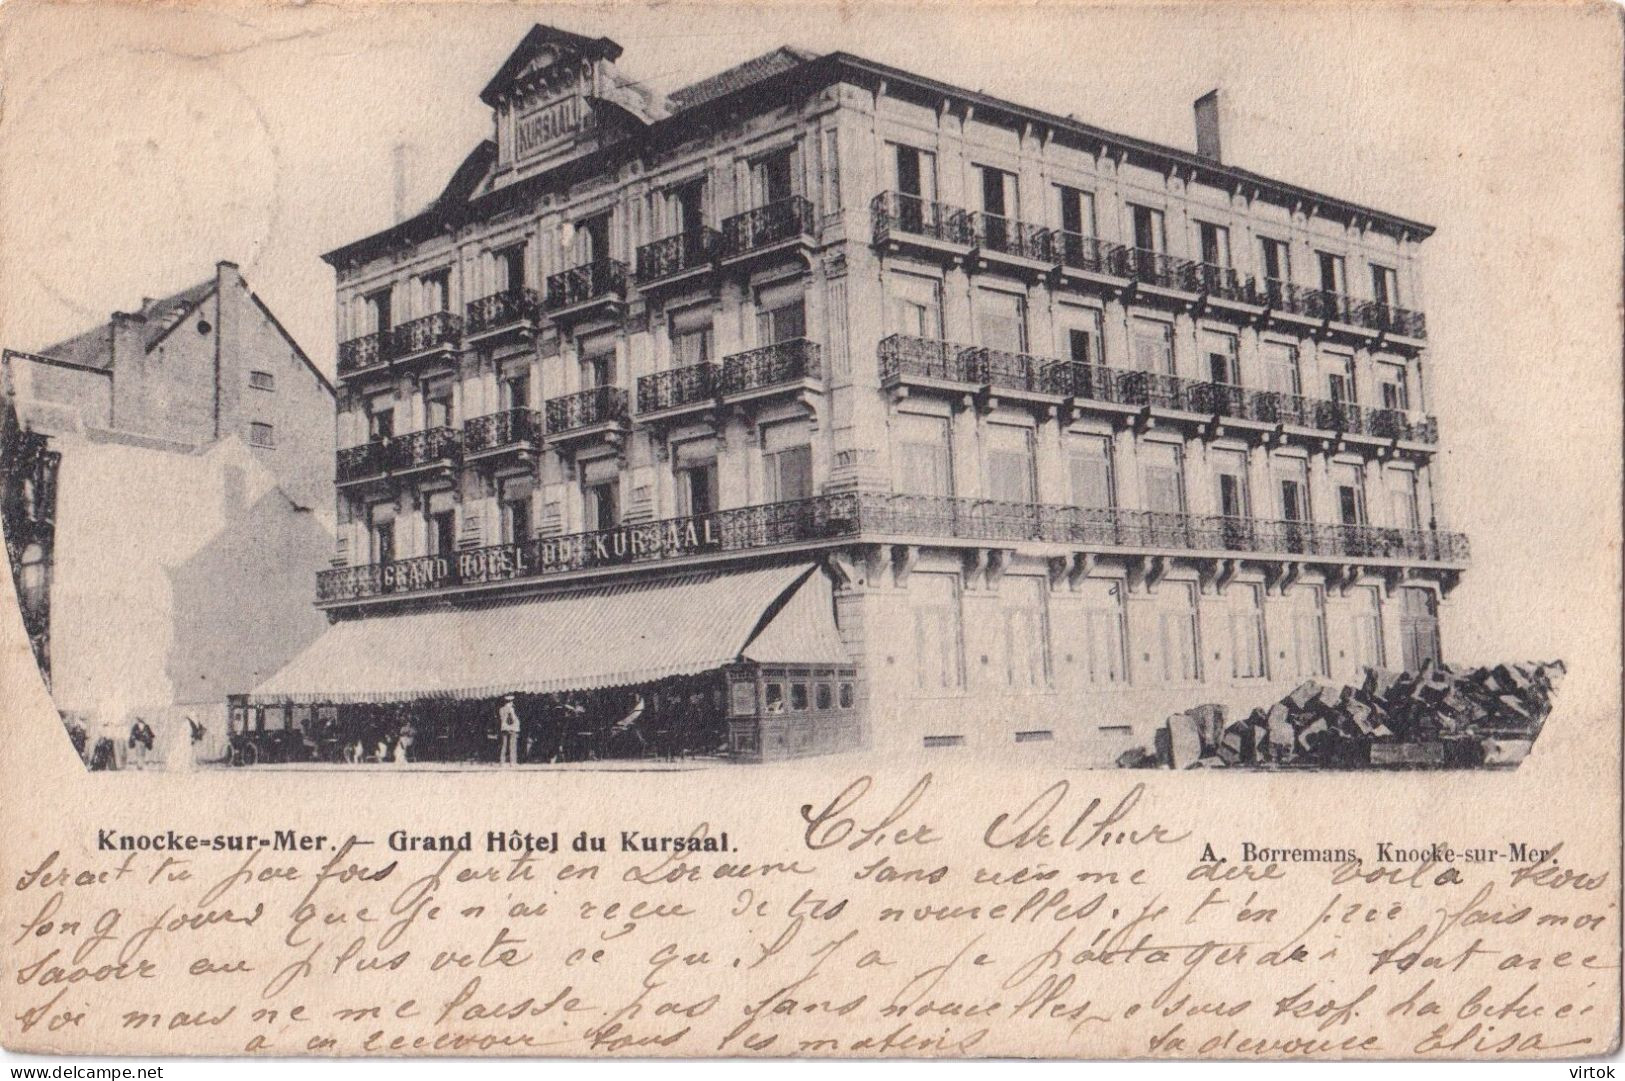 KURSAAL
GRAND HÔTEL DU KURSAAL
Knocke-sur-Mer. — Grand Hôtel du Kursaal.
Cher Arthur
A. Borremans, Knocke-sur-Mer.
serait tu par fois parti en Loraine sans rien me dire voila trois
long jours que je n'ai recu de tes nouvelles. je t'en prie fais moi
savoir au plus vite ce qu'il y a je partagerai tout avec
toi mais ne me laisse pas sans nouvelles je suis trop habitué
a en recevoir tous les matins ta devouee Elisa
virtok